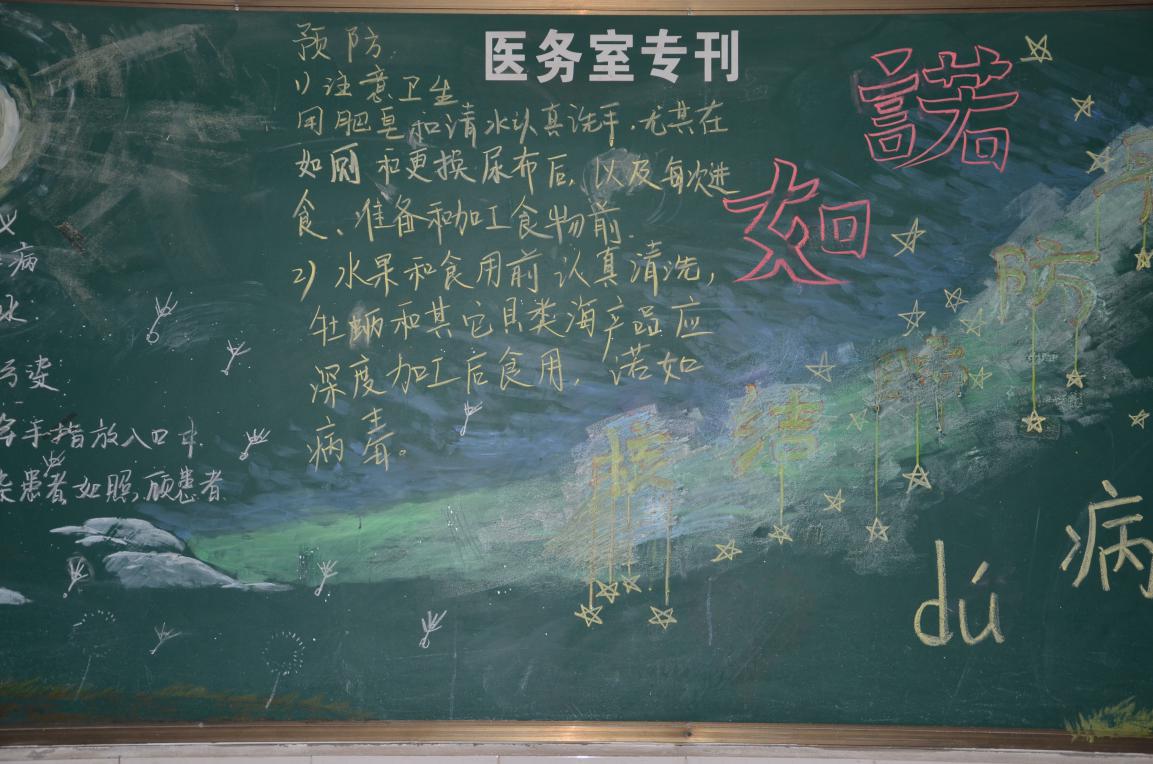 医务室专刊
预防
1）注意卫生
用肥皂和清水认真洗手，尤其在
如厕和更换尿布后，以及每次进
食、准备和加工食物前.
2）水果和食用前认真清洗，
牡蛎和其它贝类海产品应
深度加工后食用，诺如
病毒。
諾
如
病
dú
防
肺
结
核
病
污染
手指放入口中
染患者如照顾患者